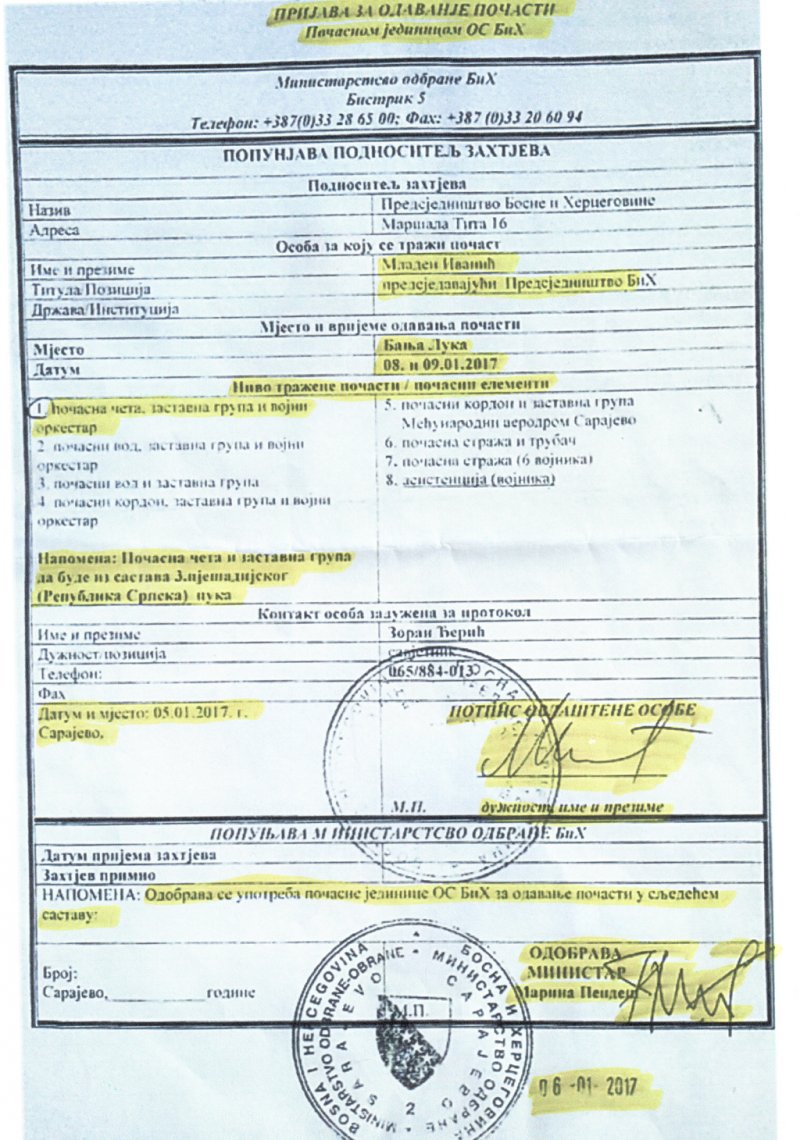 ПРИЈАВА ЗА ОДАВАЊЕ ПОЧАСТИ
Почасном јединицом ОС БиХ
Министарство одбране БиХ
Бистрик 5
Телефон: +387(0)33 28 65 00; Фах: +387 (0)33 20 60 94
ПОПУЊАВА ПОДНОСИТЕЉ ЗАХТЈЕВА
Подноситељ захтјева
Назив Предсједништво Босне и Херцеговине
Адреса Маршала Тита 16
Особа за коју се тражи почаст
Име и презиме Младен Иванић
Титула/Позиција предсједавајући Предсједништво БиХ
Држава/Институција
Мјесто и вријеме одавања почасти
Мјесто Бања Лука
Датум 08. и 09.01.2017
Ниво тражене почасти / почасни елементи
1. почасна чета, заставна група и војни
оркестар
2. почасни вод, заставна група и војни
оркестар
3. почасни вод и заставна група
4. почасни кордон, заставна група и војни
оркестар
5. почасни кордон и заставна група
Међународни аеродром Сарајево
6. почасна стража и трубач
7. почасна стража (6 војника)
8. асистенција (војника)
Напомена: Почасна чета и заставна група
да буде из састава 3.пјешадијског
(Република Српска) пука
Контакт особа задужена за протокол
Име и презиме Зоран Ђерић
Дужност/позиција савјетник
Телефон: 065/884-013
Фах
Датум и мјесто: 05.01.2017. г.
Сарајево,
ПОТПИС ОВЛАШТЕНЕ ОСОБЕ
М.П. дужност, име и презиме
ПОПУЊАВА МИНИСТАРСТВО ОДБРАНЕ БиХ
Датум пријема захтјева
Захтјев примио
НАПОМЕНА: Одобрава се употреба почасне јединице ОС БиХ за одавање почасти у сљедећем
саставу:
Број:
Сарајево,____________године
ОДОБРАВА
МИНИСТАР
Марина Пендеш
М.П.
BOSNA I HERCEGOVINA
БОСНА И ХЕРЦЕГОВИНА
MINISTARSTVO ODBRANE-OBRANE
МИНИСТАРСТВО ОДБРАНЕ
SARAJEVO
САРАЈЕВО
2
06 -01- 2017